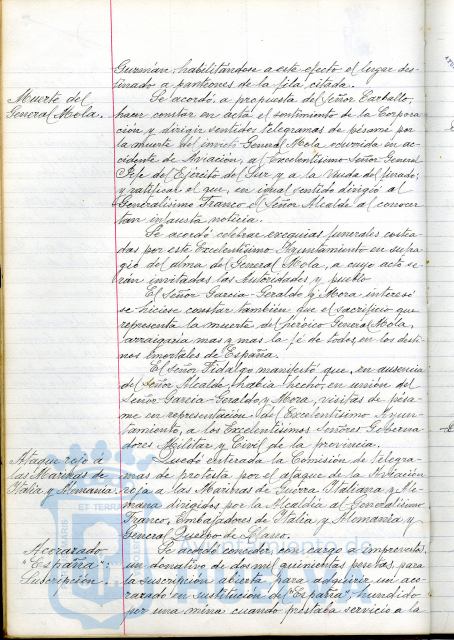 Guzmán, habilitándose a este efecto el lugar des-
tinado a panteones de la fila citada.
Muerte del
General Mola.
Se acordó, a propuesta del Señor Carballo,
hacer constar en acta el sentimiento de la Corpora-
ción y dirigir sentidos telegramas de pésame por
la muerte del invicto General Mola ocurrida en ac-
cidente de Aviación, al Excelentísimo Señor General
Jefe del Ejército del Sur y a la Viuda del finado;
y ratificar el que, en igual sentido dirigió al
Generalísimo Franco el Señor Alcalde al conocer
tan infausta noticia.
Se acordó celebrar exequias funerales costea-
das por este Excelentísimo Ayuntamiento en sufra-
gio del alma del General Mola, a cuyo acto se-
rán invitadas las Autoridades y pueblo
El Señor Garcia-Geraldo y Mora interesó
se hiciese constar también que el sacrificio que
representa la muerte del heróico General Mola,
arraigaría mas y mas la fé de todos en los desti-
nos inmortales de España.
El Señor Fidalgo manifestó que, en ausencia
del Señor Alcalde, había hecho, en unión del
Señor Garcia-Geraldo y Mora, visitas de pésa-
me en representación del Excelentísimo Ayun-
tamiento, a los Excelentísimos Señores Goberna-
dores Militar y Civil de la provincia.
Ataque rojo á
las Marinas de
Italia y Alemania.
Quedó enterada la Comisión de telegra-
mas de protesta por el ataque de la Aviación
roja a las Marinas de Guerra Italiana y Ale-
mana dirigidos por la Alcaldía al Generalísimo
Franco, Embajadores de Italia y Alemania y
General Queipo de Llano.
Acorazado
"España":
Suscripción.
Se acordó conceder, con cargo a imprevistos,
un donativo de dos mil quinientas pesetas para
la suscripción abierta para adquirir un aco-
razado en sustitución del "España", hundido
por una mina cuando prestaba servicio a la